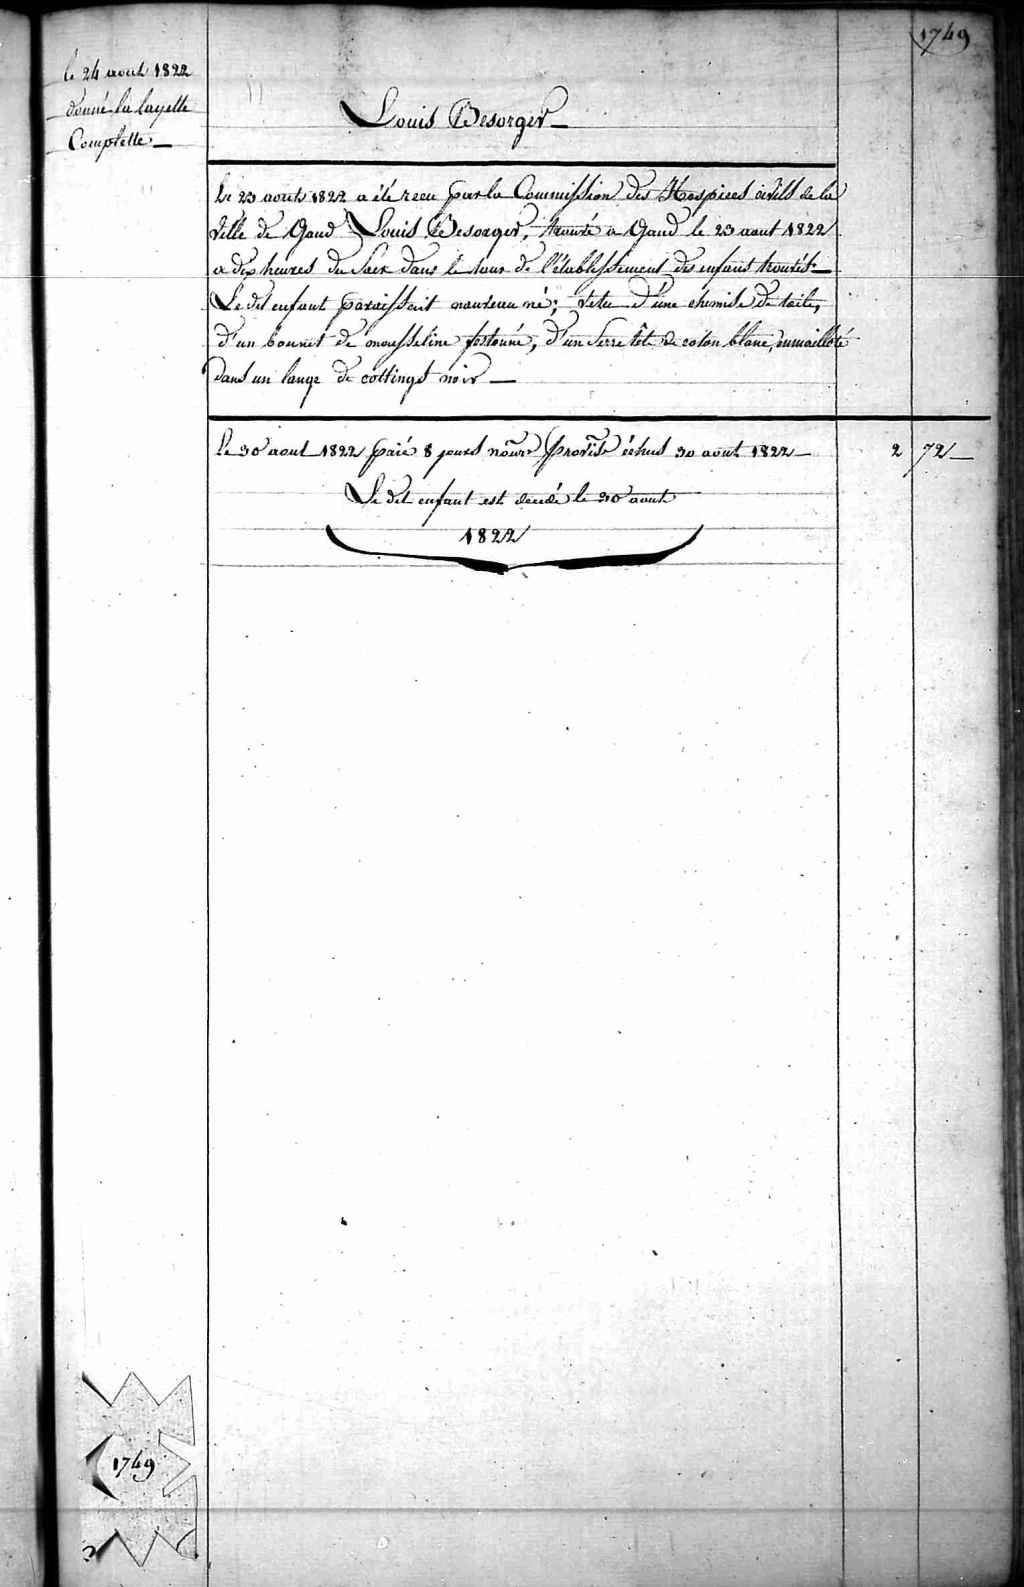 1749
le 24 aout 1822
donné la layette
Complette
Louis Besorger
Le 23 aout 1822 a été recu par la Commission des Hospices civils de la
Ville de Gand Louis Besorger, trouvé a Gand le 23 aout 1822
a dix heures du Soir dans le tour de l'établissement des enfans trouvés
Le dit enfant paraissait nouveau né; Vetu d'une chemise de toile,
d'un bonnet de mousseline festonné, d'un Serre tête de coton blanc, emmailloté
dans un lange de cottings noir
Le 30 aout 1822 paié 8 jours nourre provisre échus 30 aout 1822 2 72
Le dit enfant est decedé le 30 aout
1822
1749